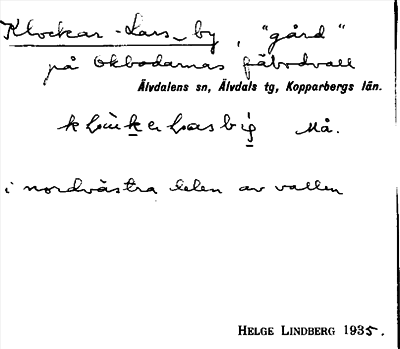 Klockar-Lars-by, "gård"
på Okbodarnas fäbodvall
Älvdalens sn, Älvdals tg, Kopparbergs län.
Må.
i nordvästra delen av vallen
HELGE LINDBERG 1935.